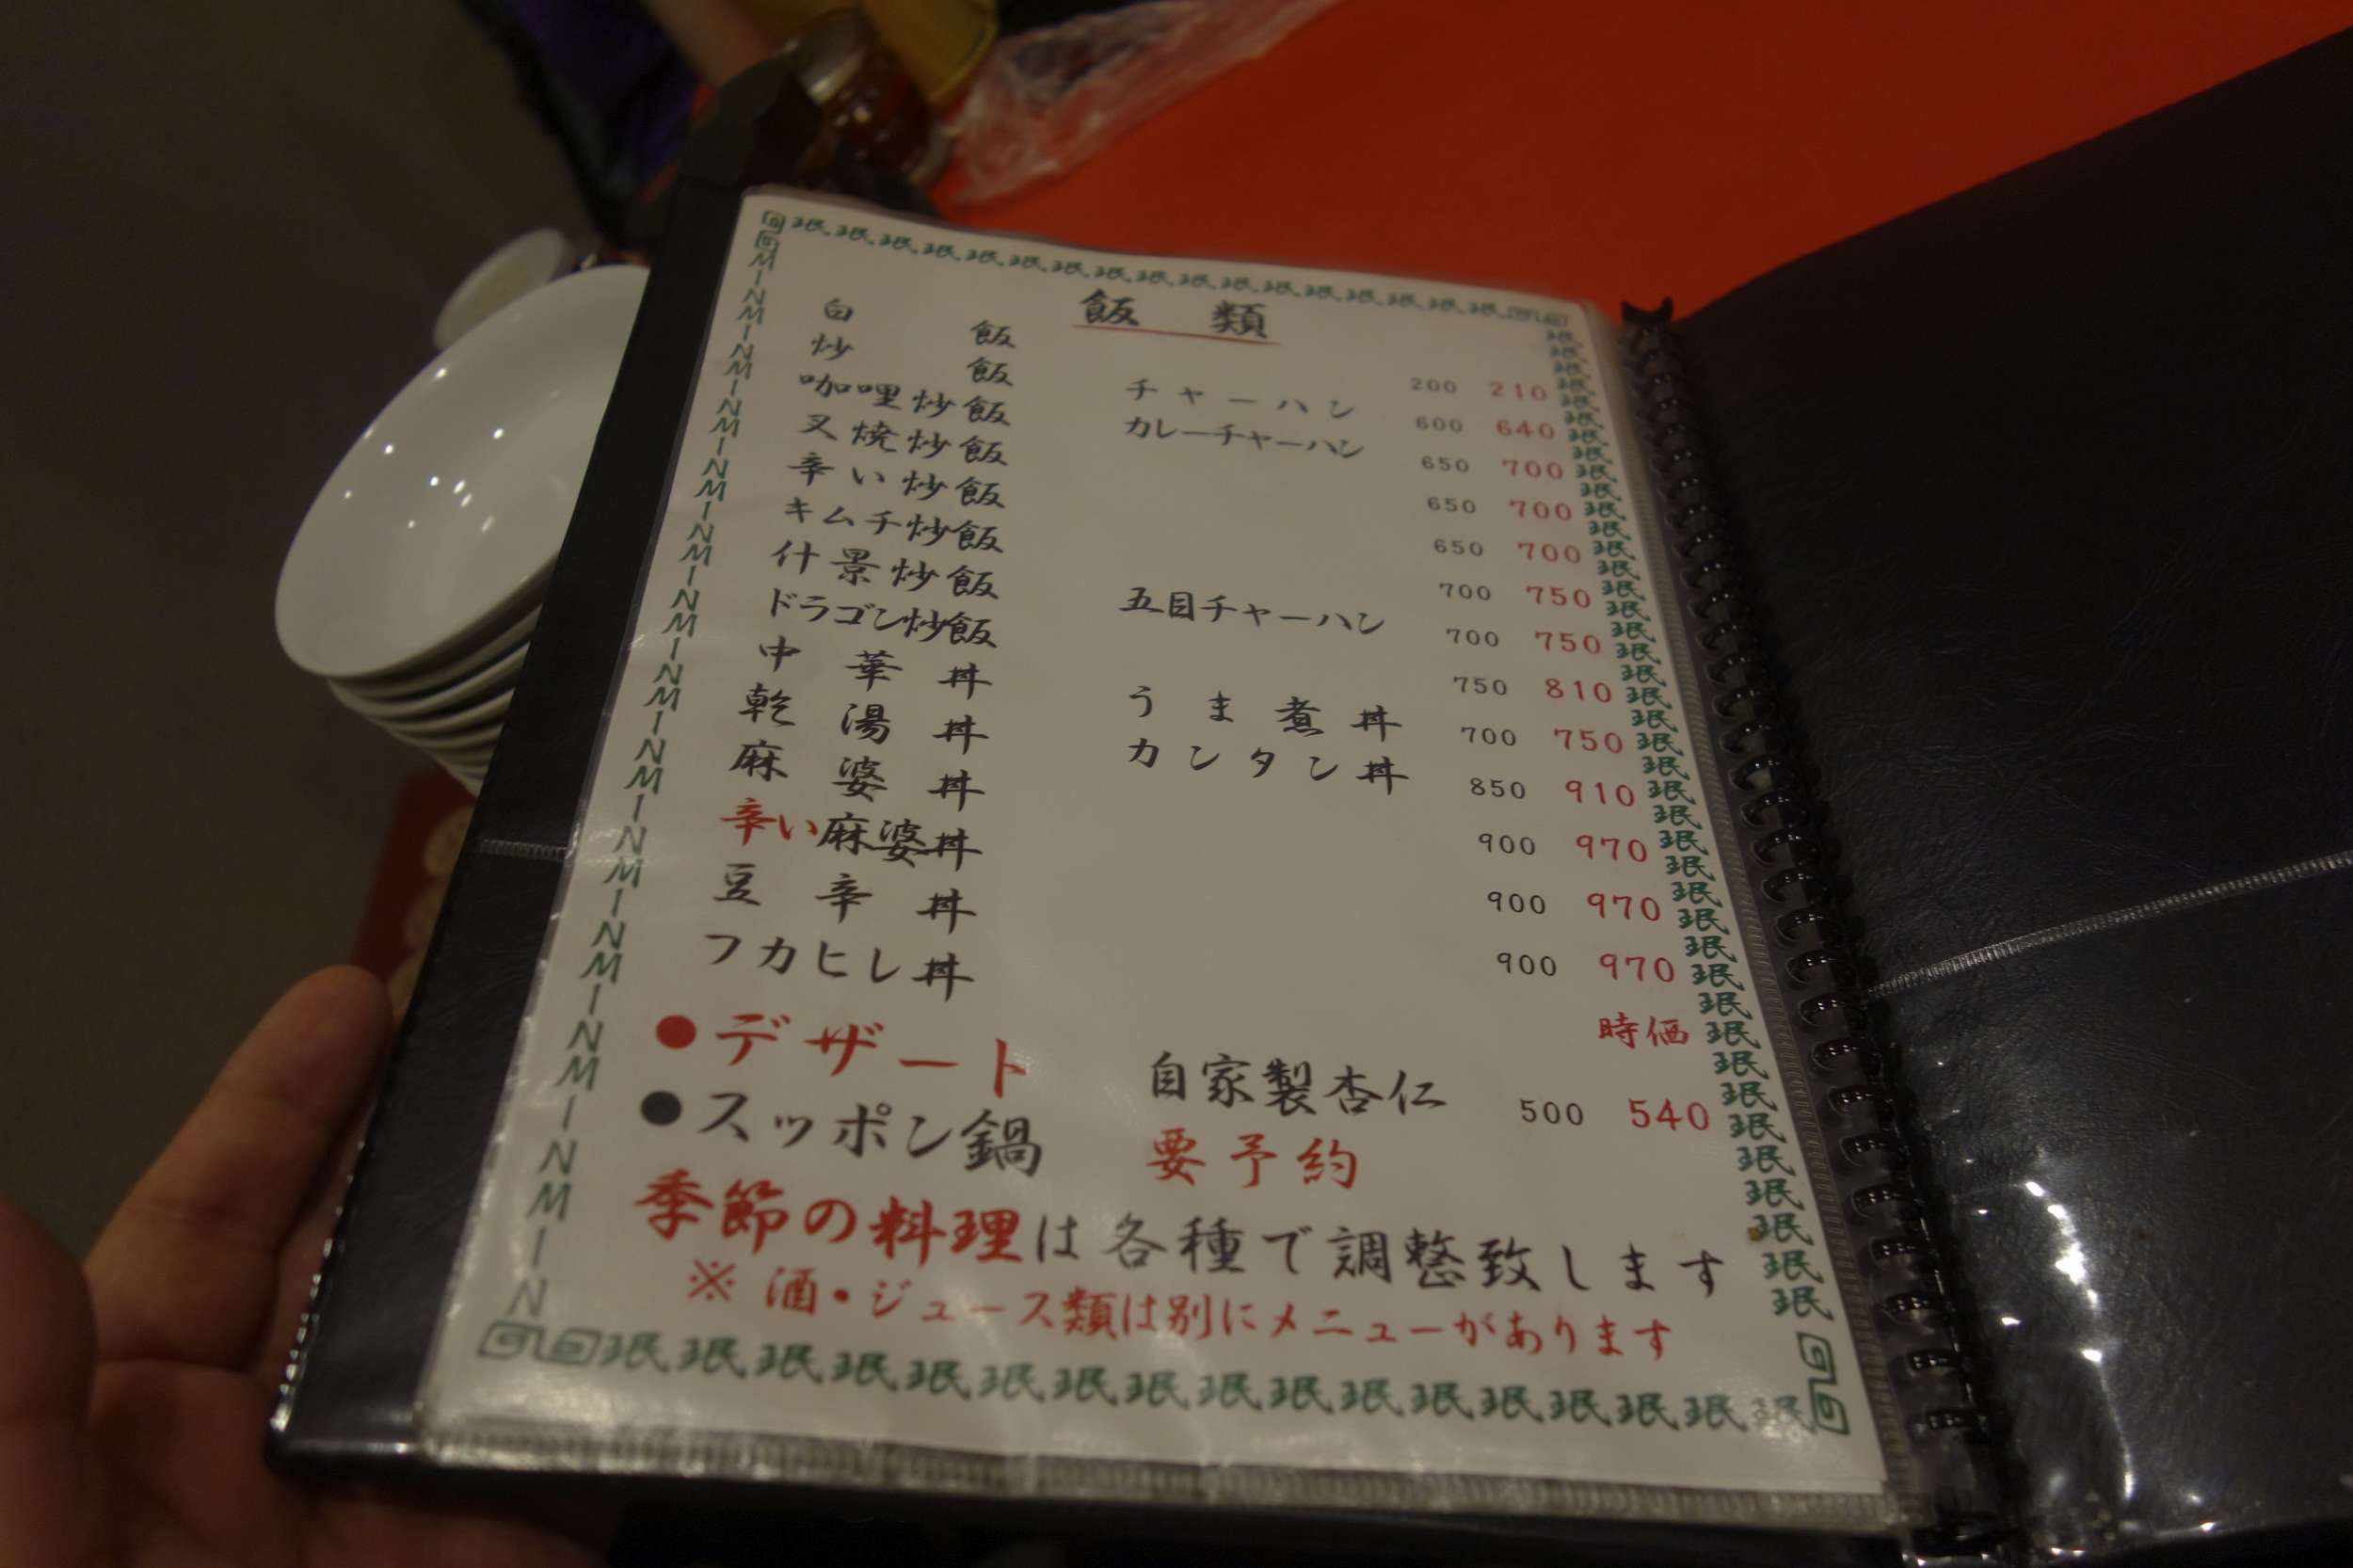 珉珉珉珉珉珉珉珉珉珉珉珉珉珉珉珉珉
MINMINMINMINMINMINMINMINMINMINMINMINMIN
飯 類
白飯 200 210
炒飯 チャーハン 600 640
咖哩炒飯 カレーチャーハン 650 700
叉焼炒飯 650 700
辛い炒飯 650 700
キムチ炒飯 700 750
什景炒飯 五目チャーハン 700 750
ドラゴン炒飯 750 810
中華丼 うま煮丼 700 750
乾湯丼 カンタン丼 850 910
麻婆丼 900 970
辛い麻婆丼 900 970
豆辛丼 900 970
フカヒレ丼 時価
●デザート 自家製杏仁 500 540
●スッポン鍋 要予約
季節の料理は各種で調整致します
※ 酒・ジュース類は別にメニューがあります
珉珉珉珉珉珉珉珉珉珉珉珉珉珉珉珉珉